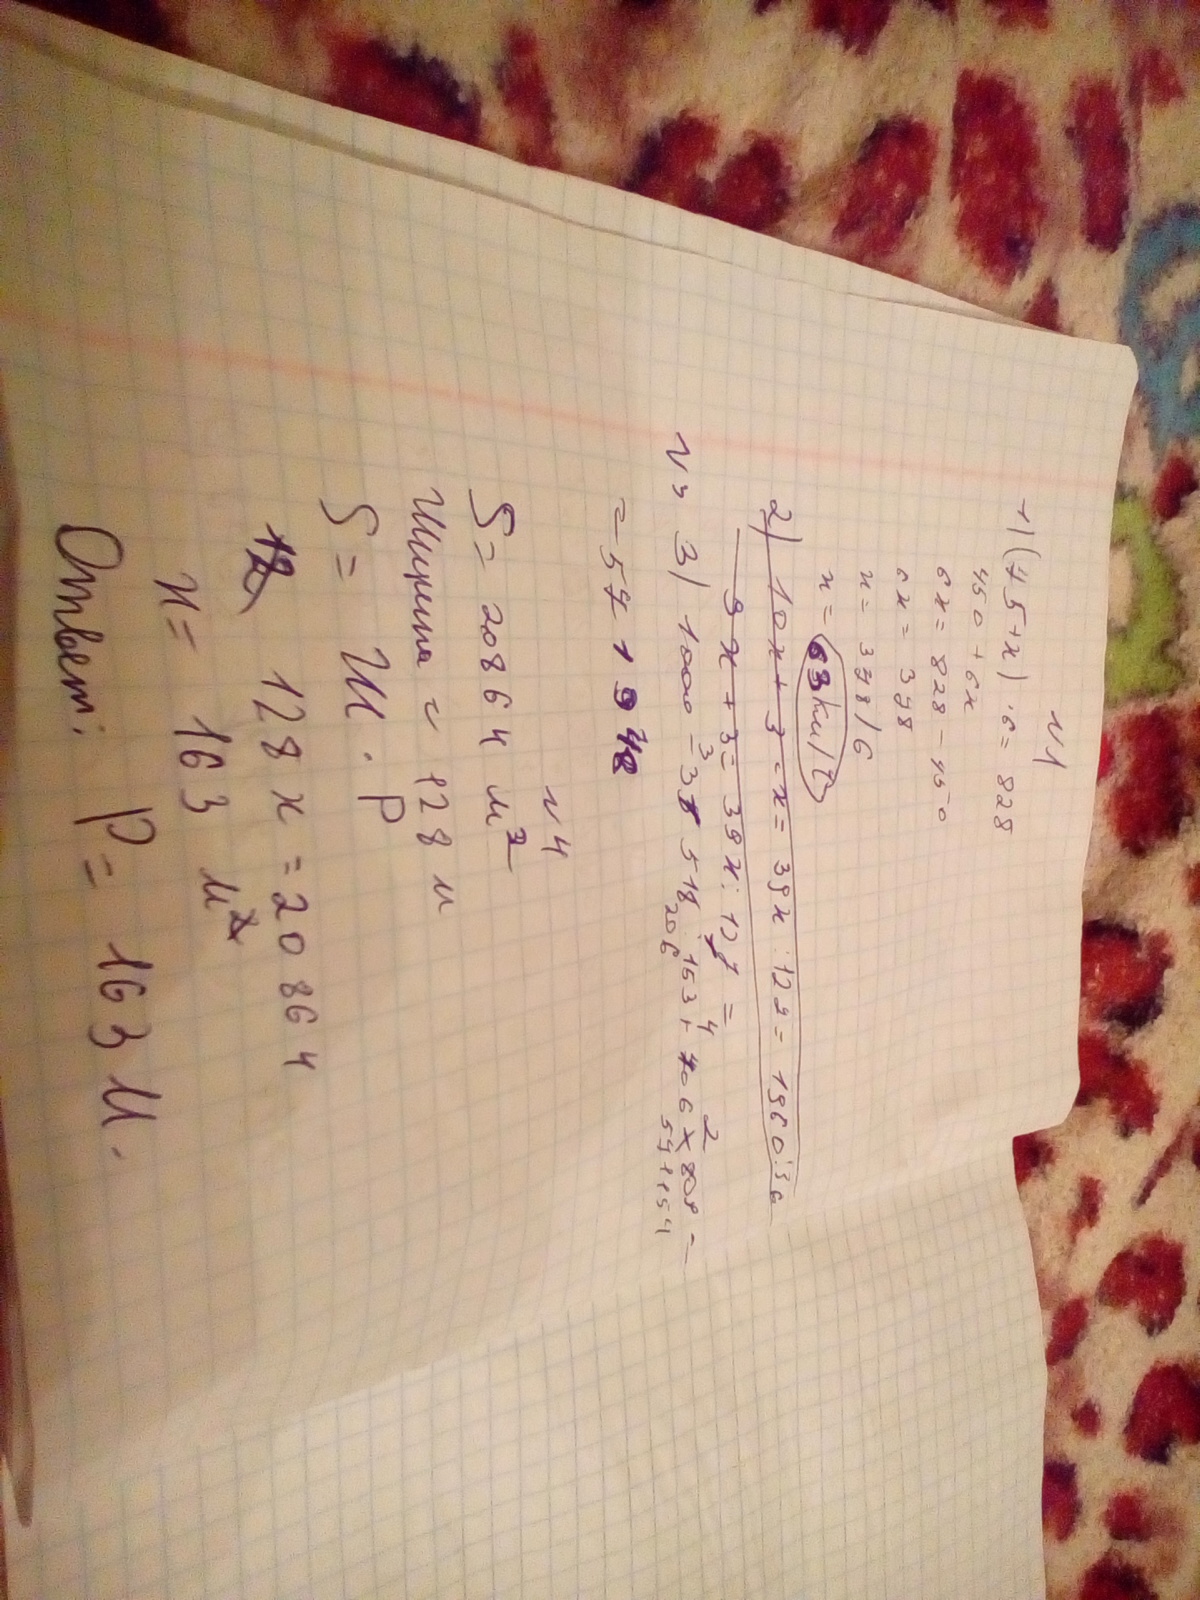 N1
1) (75+x) · 6 = 828
450 + 6x
6x = 828 - 450
6x = 378
x = 378/6
x = 63 км/ч
2) 10x + 3 - x = 39x : 129 = 1960:36
9x + 3 = 39x : 129 =
N3 3) 1000 - 33 518 : 163 + 706 x 808 =
206
57 1154
= 57 1 948
N4
S = 20864 м²
Ширина = 128 м
S = Ш · Р
128 x = 20864
x = 163 м
Ответ: P = 163 м.